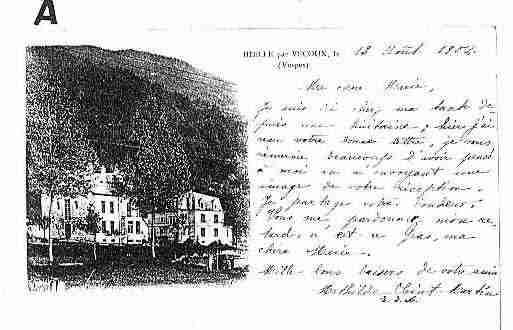 A
HERLE par VECOUX, le 18 Août 1904.
(Vosges)
Ma chère Marie,
Je suis ici chez ma tante de
puis une huitaine; hier j'ai
reçu votre bonne lettre, je vous
remercie beaucoup d'avoir pensé
à moi en m'envoyant une
image de votre réception.
Je partage votre bonheur!
Vous me pardonnez mon re-
tard, n'est ce pas, ma
chère Marie.
Mille bons baisers de votre amie
Mathilde Saint-Martin